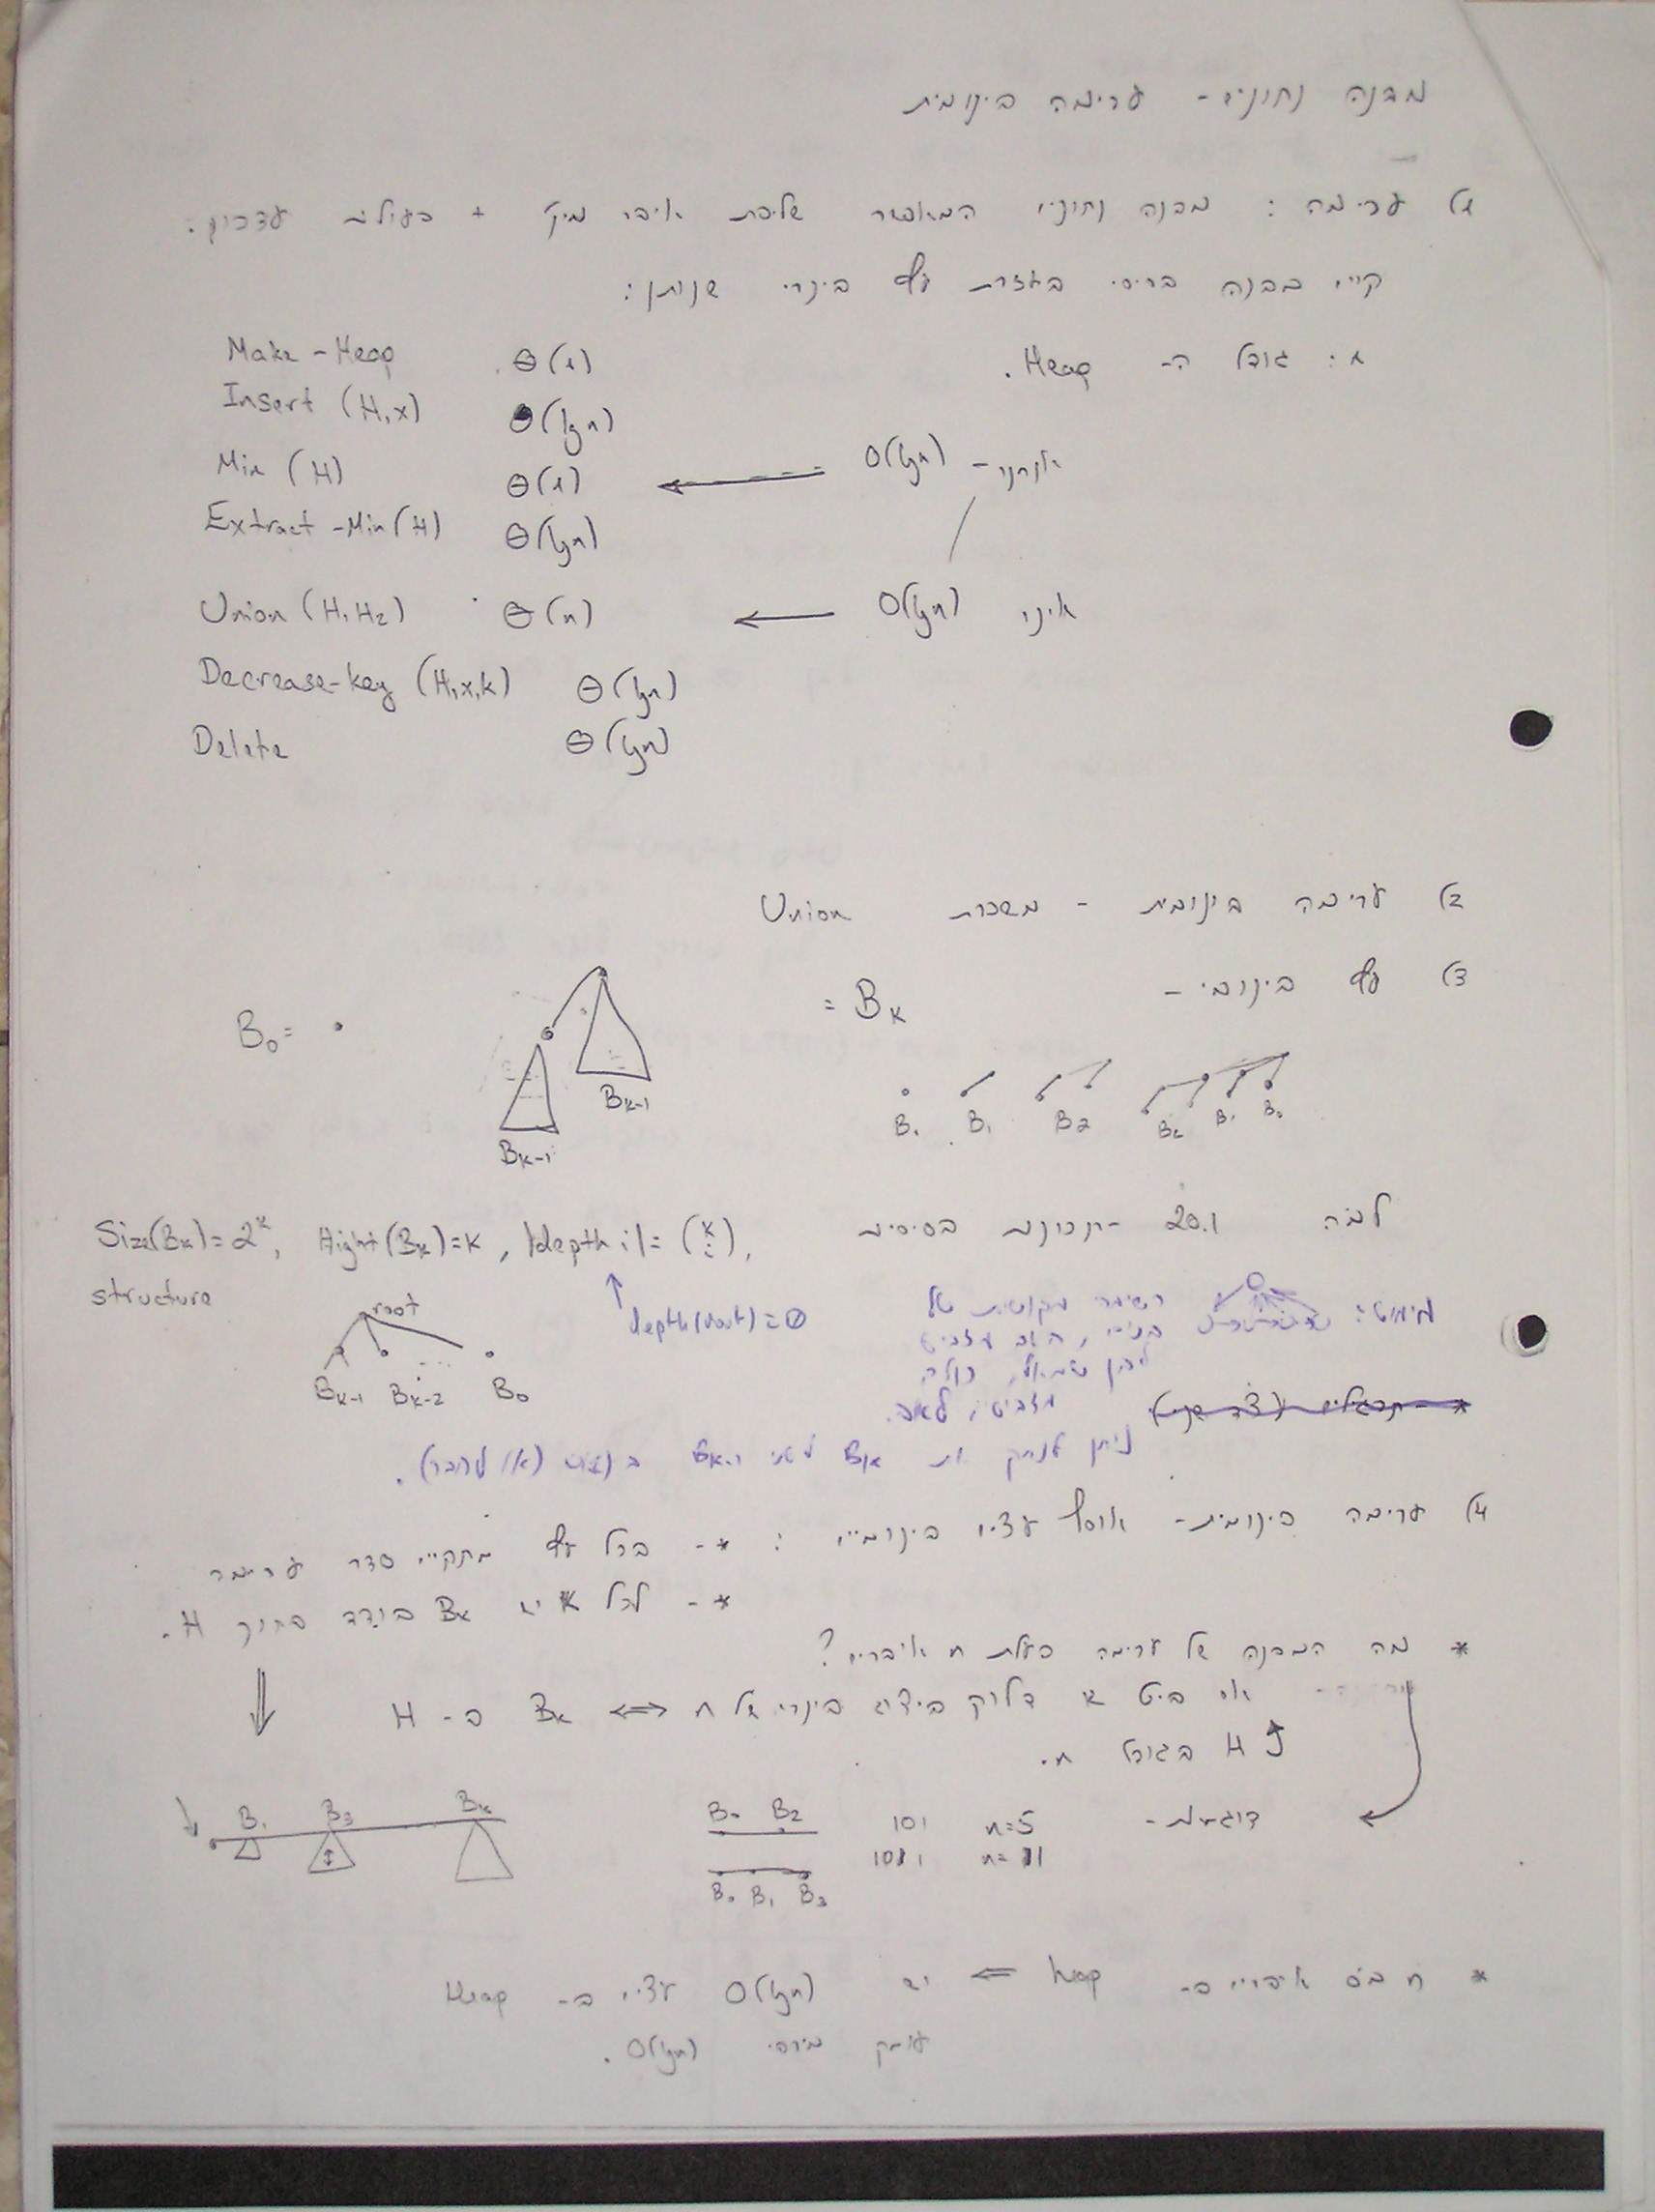 מבנה נתונים - ערימה בינומית
1) ערימה : מבנה נתונים המאפשר שליפת איבר מינ' + פעולות עדכון.
קיים מבנה בסיסי בעזרת עץ בינרי שנותן:
n: גודל ה- Heap.
Make-Heap Θ(1)
Insert (H,x) Θ(lgn)
Min (H) Θ(1) ← O(lgn) - אנחנו
Extract-Min(H) Θ(lgn)
Union (H1H2) Θ(n) ← O(lgn)
Decrease-key (H,x,k) Θ(lgn)
Delete Θ(lgn)
2) ערימה בינומית - משפרת Union
3) עץ בינומי -
B0= = BK
BK-1
BK-1
B0 B1 B2 B2 B1 B0
למה 20.1 - תכונות בסיסיות
Size(BK)=2^K, Hight(BK)=K, |depth i|= (K i),
structure
depth(root)=0
root
BK-1 BK-2 ... B0
מימוש: רשימה מקושרת של
בנים, האב מצביע
לבן שמאלי, כולם
מצביעים לאב.
* תרגילים
ניתן לפרק את BK לשני BK-1 (או לחבר).
4) ערימה בינומית - אוסף עצים בינומיים : * - בכל עץ מתקיים סדר ערימה
* - לכל K יש BK בודד בתוך H.
* מה המבנה של ערימה בעלת n איברים?
אם ביט K דלוק ביצוג בינרי של n ⟺ BK ב- H
H בגודל n.
דוגמאות -
n=5 101 B0 B2
n=11 1011 B0 B1 B3
B1 B3 BK
* n איברים ב- heap ⇐ יש O(lgn) עצים ב- Heap
עומק מירבי O(lgn).